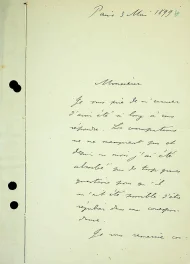 Paris 3 Mai 1899
Monsieur
Je vous prie de m'excuser
d'avoir été si long à vous
répondre. Les occupations
ne me manquent pas et
j'ai été
absorbé par de
questions
m'ait été possible d'être
régulier dans ma correspon-
dance.
Je vous remercie